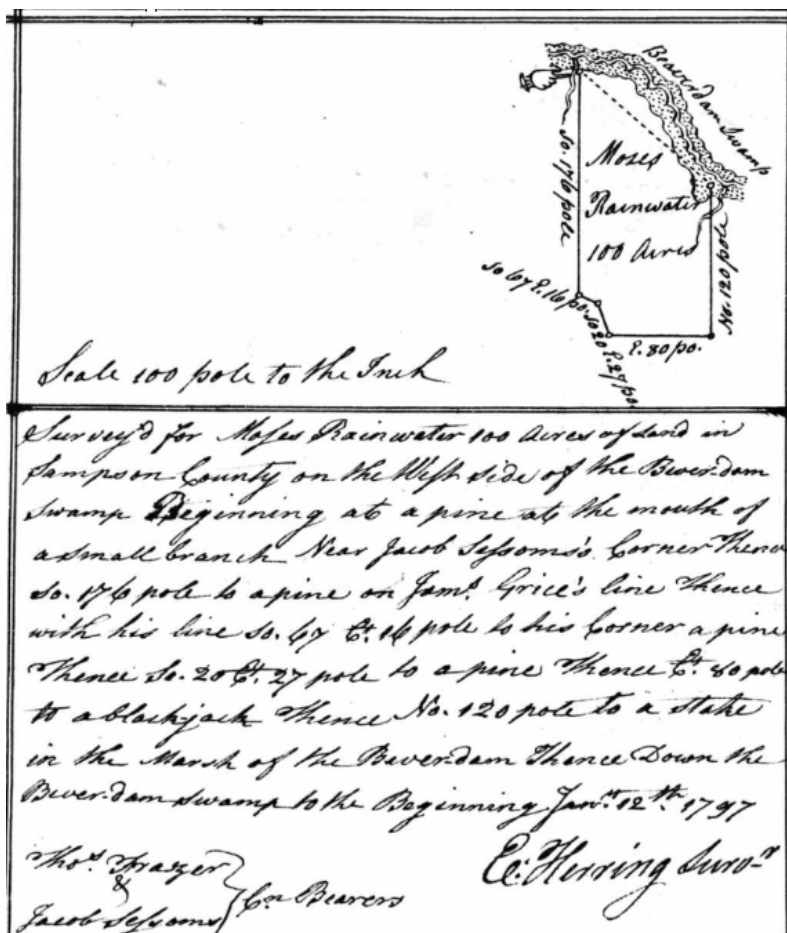 Beaverdam Swamp
So. 176 pole
Moses
Rainwater
100 Acres
No. 120 pole
So 67 E. 16 po.
So 20 E. 27 po.
E. 80 po.
Scale 100 pole to the Inch
Survey'd for Moses Rainwater 100 Acres of Land in
Sampson County on the West side of the Bever-dam
Swamp Beginning at a pine at the mouth of
a small branch Near Jacob Sessoms's Corner Thence
So. 176 pole to a pine on Jams. Grice's line Thence
with his line So. 67 Et. 16 pole to his Corner a pine
Thence So. 20 Et. 27 pole to a pine Thence Et. 80 pole
to a blackjack Thence No. 120 pole to a stake
in the Marsh of the Bever-dam Thance Down the
Bever-dam swamp to the Beginning Janry. 12th. 1797
Thos. Frazer
&
Jacob Sessoms
Cn Bearers
E. Herring Survr